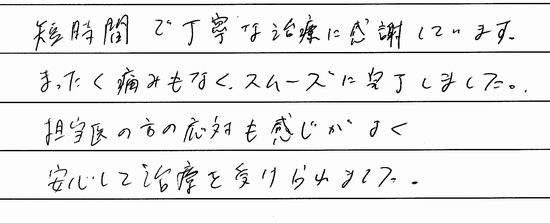 短時間で丁寧な治療に感謝しています。
まったく痛みもなく、スムーズに完了しました。
担当医の方の応対も感じがよく
安心して治療を受けられました。